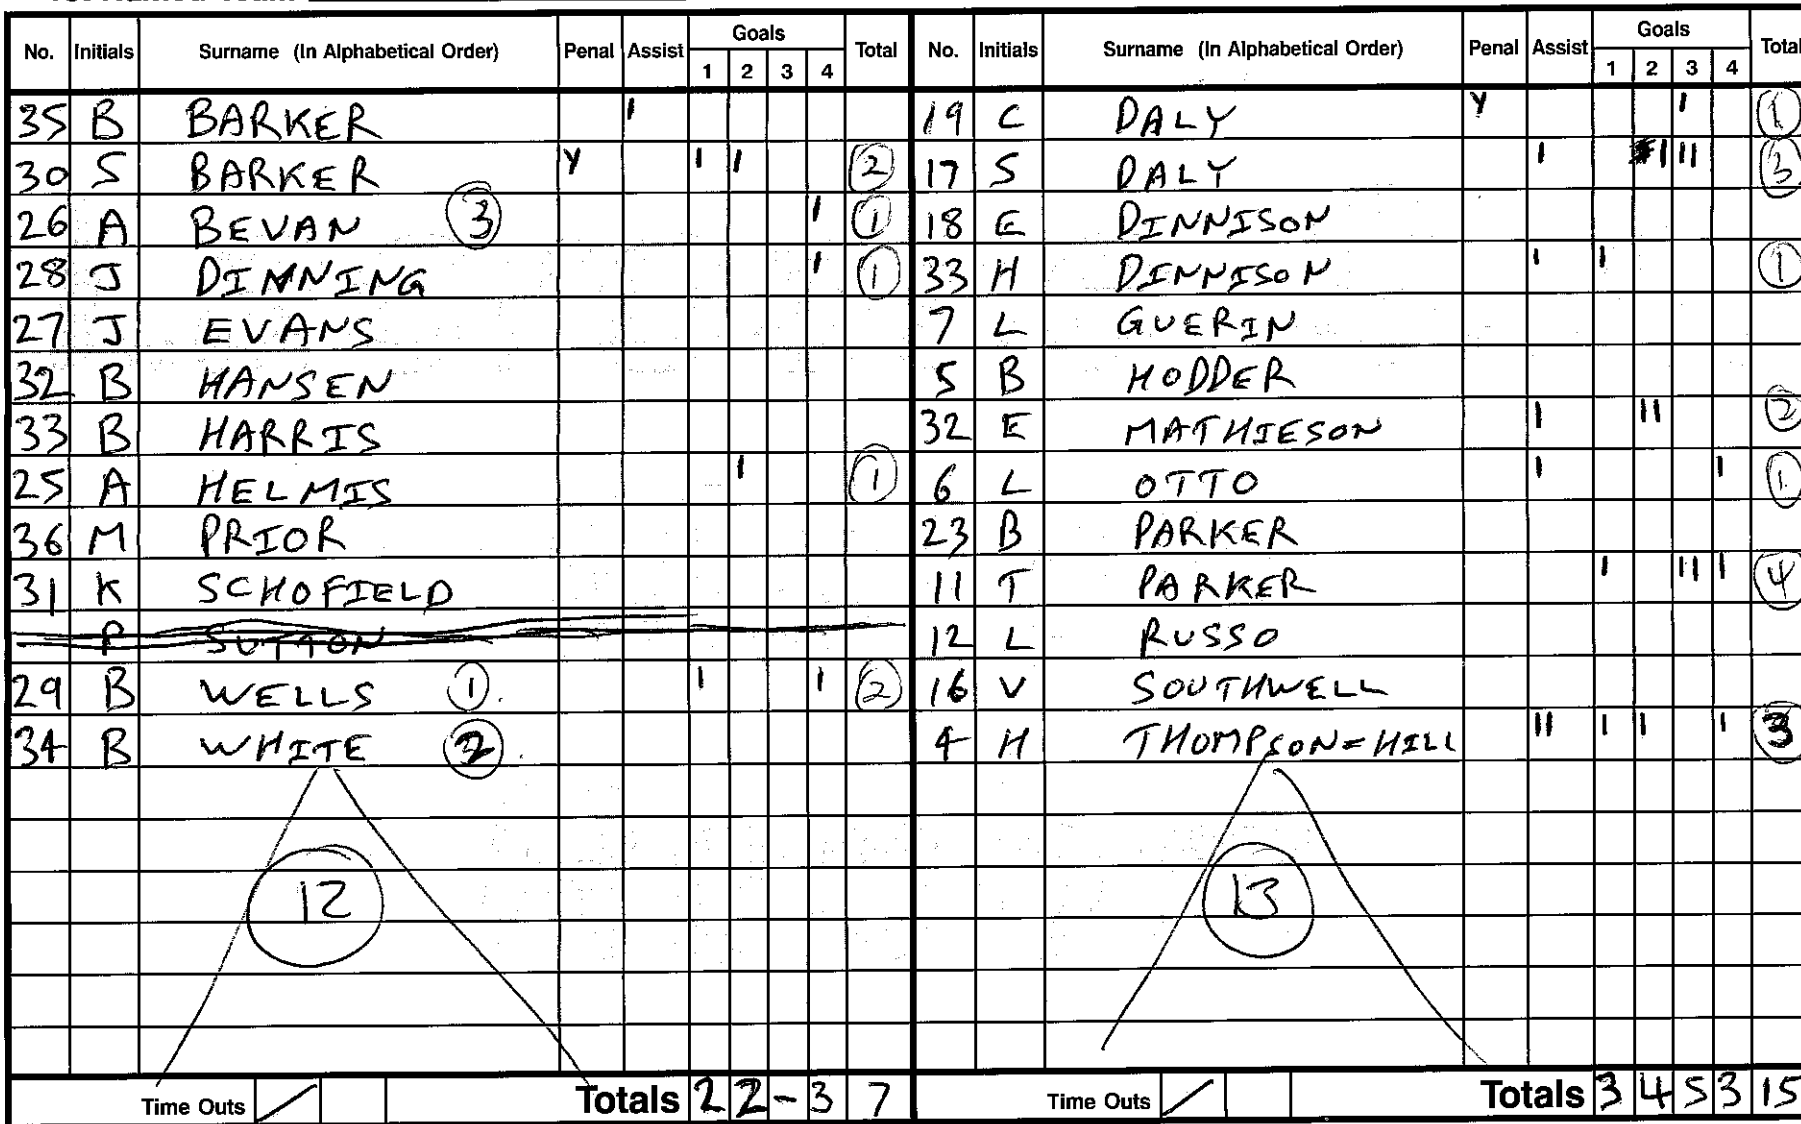 No. Initials Surname (In Alphabetical Order) Penal Assist Goals 1 2 3 4 Total
35 B BARKER I
30 S BARKER Y I I 2
26 A BEVAN 3 I 1
28 J DINNING I 1
27 J EVANS
32 B HANSEN
33 B HARRIS
25 A HELMIS I 1
36 M PRIOR
31 K SCHOFIELD
P SUTTON
29 B WELLS 1 I I 2
34 B WHITE 2
12
Time Outs / Totals 2 2 - 3 7
No. Initials Surname (In Alphabetical Order) Penal Assist Goals 1 2 3 4 Total
19 C DALY Y I 1
17 S DALY I I II 3
18 E DINNISON
33 H DINNISON I I 1
7 L GUERIN
5 B HODDER
32 E MATHIESON I II 2
6 L OTTO I I 1
23 B PARKER
11 T PARKER I II I 4
12 L RUSSO
16 V SOUTHWELL
4 H THOMPSON=HILL II I I I 3
13
Time Outs / Totals 3 4 5 3 15